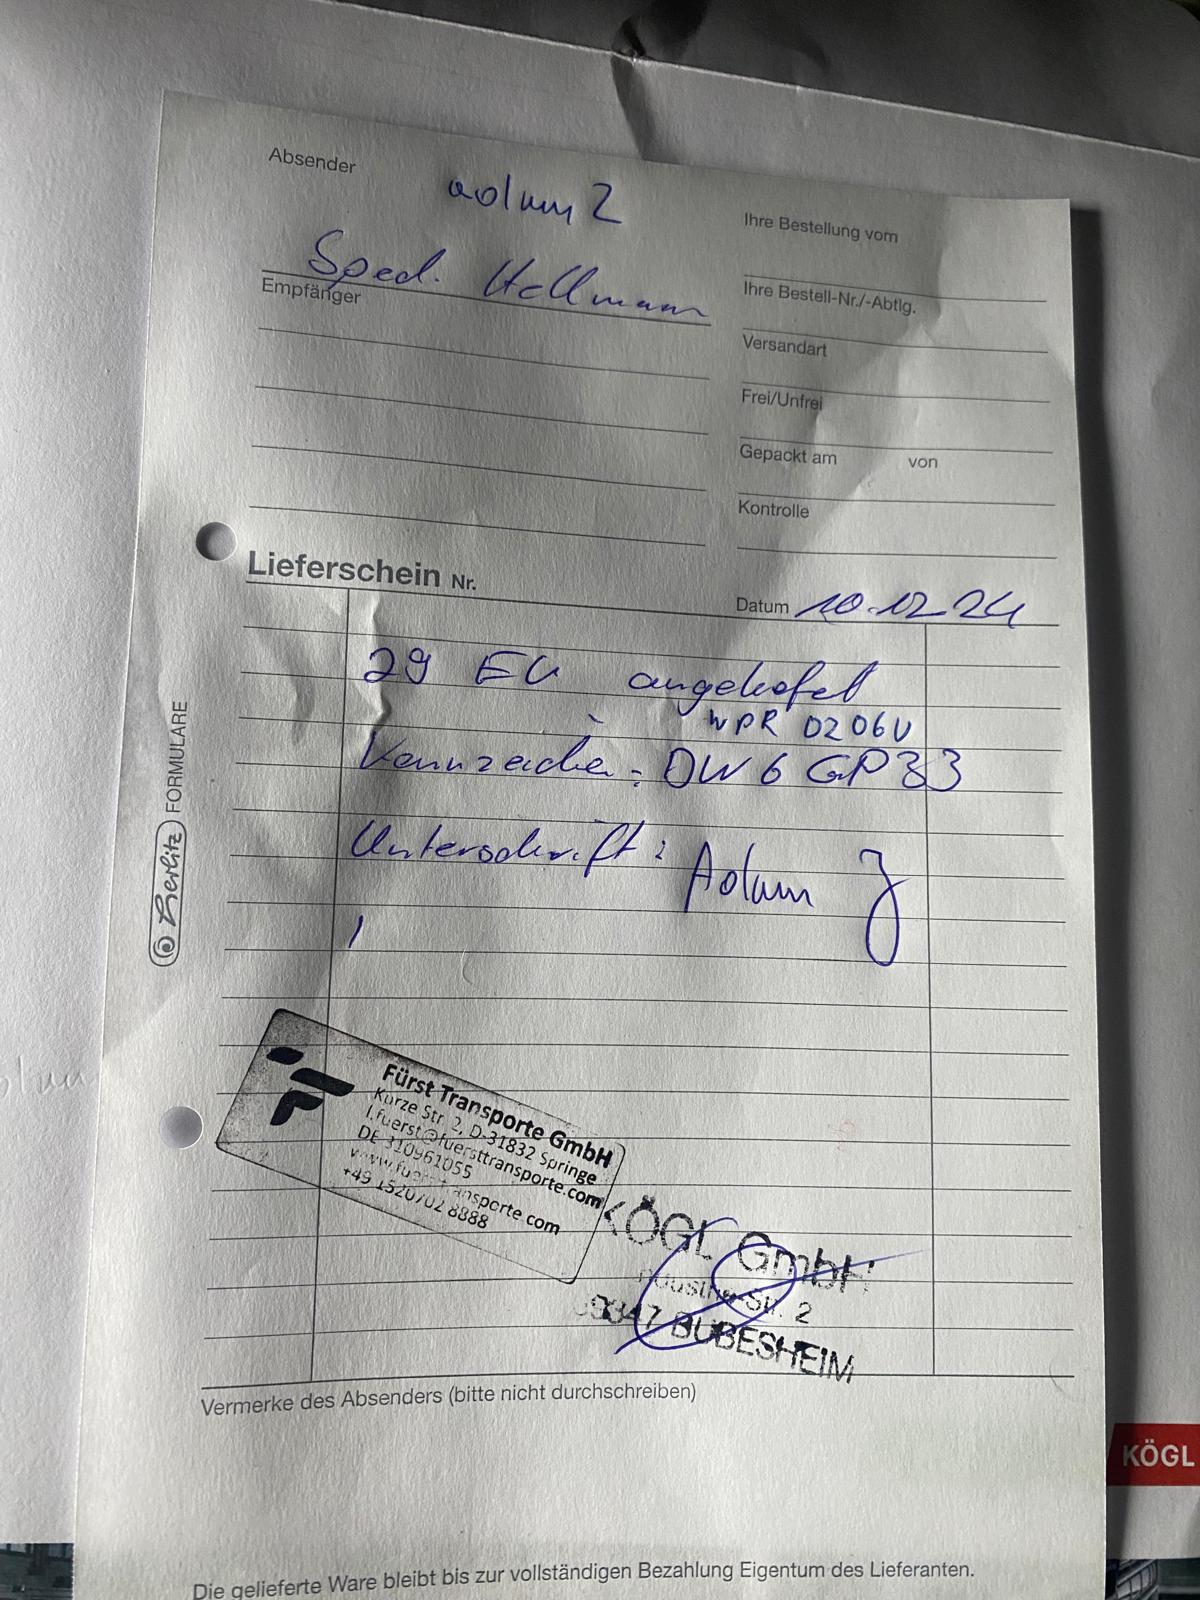 Absender
Sped. Hellmann
Empfänger
Ihre Bestellung vom
Ihre Bestell-Nr./-Abtlg.
Versandart
Frei/Unfrei
Gepackt am von
Kontrolle
Lieferschein Nr.
Datum 10.12.24
29 EU
WPR 0206U
Kennzeichen: DW6 GP33
Unterschrift: Adam J
Herlitz FORMULARE
Fürst Transporte GmbH
Kurze Str. 2, D-31832 Springe
l.fuerst@fuersttransporte.com
DE 310961055
+49 1520702 8888
KÖGL GmbH
Str. 2
89347 BUBESHEIM
Vermerke des Absenders (bitte nicht durchschreiben)
KÖGL
Die gelieferte Ware bleibt bis zur vollständigen Bezahlung Eigentum des Lieferanten.